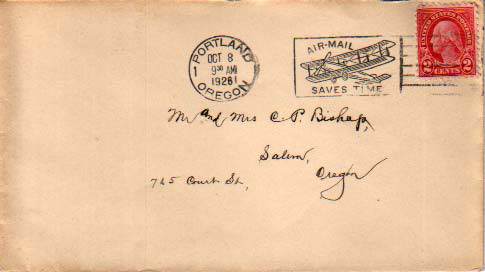 PORTLAND
OCT 8
9 30 AM
1926
OREGON
1
AIR-MAIL
SAVES TIME
UNITED STATES POSTAGE
2 CENTS 2
Mr and Mrs C. P. Bishop,
Salem,
Oregon
765 Court St,